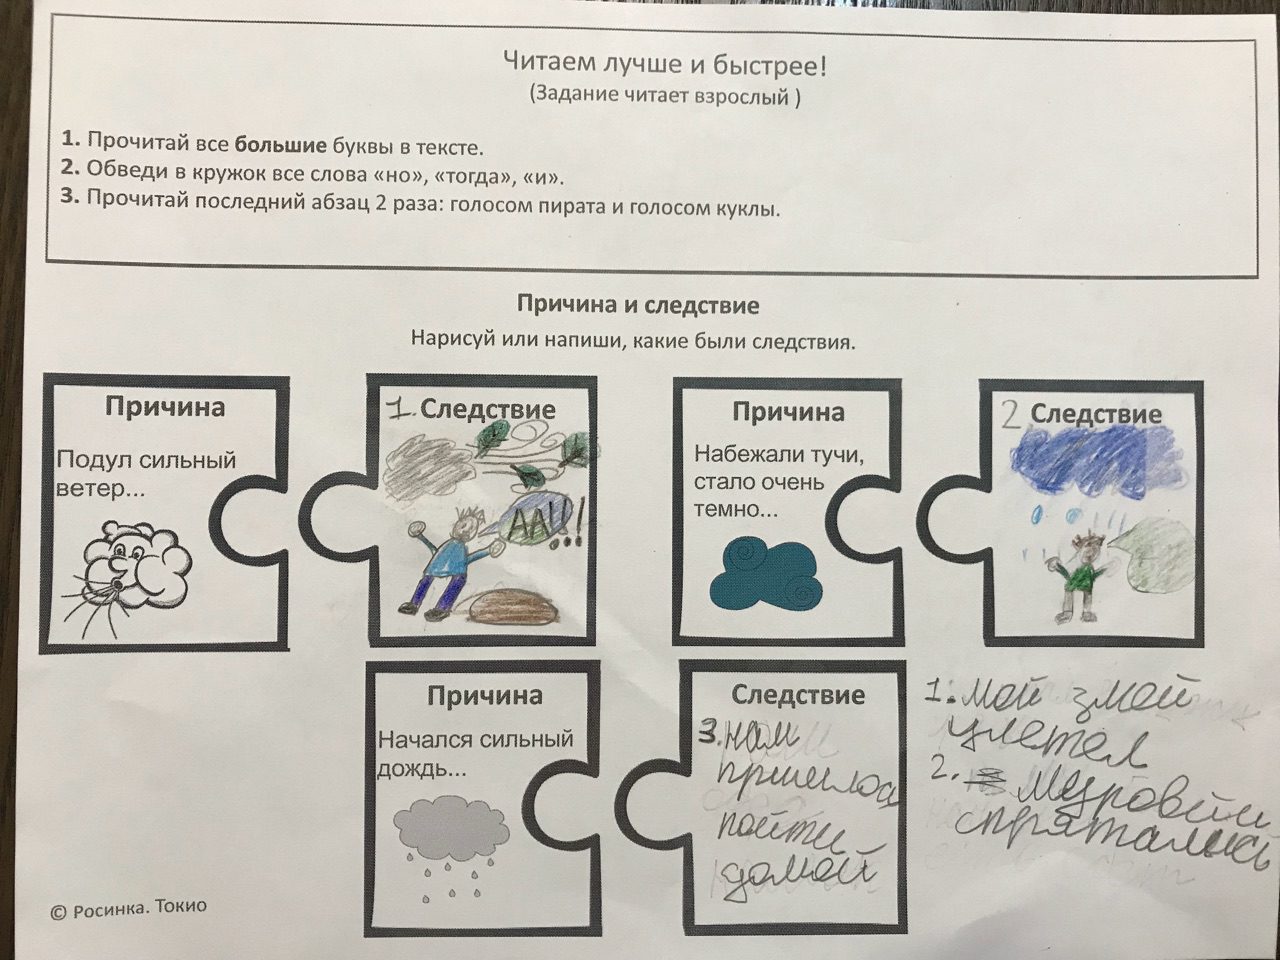 Читаем лучше и быстрее!
(Задание читает взрослый )
1. Прочитай все большие буквы в тексте.
2. Обведи в кружок все слова «но», «тогда», «и».
3. Прочитай последний абзац 2 раза: голосом пирата и голосом куклы.
Причина и следствие
Нарисуй или напиши, какие были следствия.
Причина
Подул сильный
ветер...
1. Следствие
АА!!!
Причина
Набежали тучи,
стало очень
темно...
2 Следствие
Причина
Начался сильный
дождь...
Следствие
3. нам
пришлось
пойти
домой
1. мой змой
улетел
2. муровьи
спрятались
© Росинка. Токио